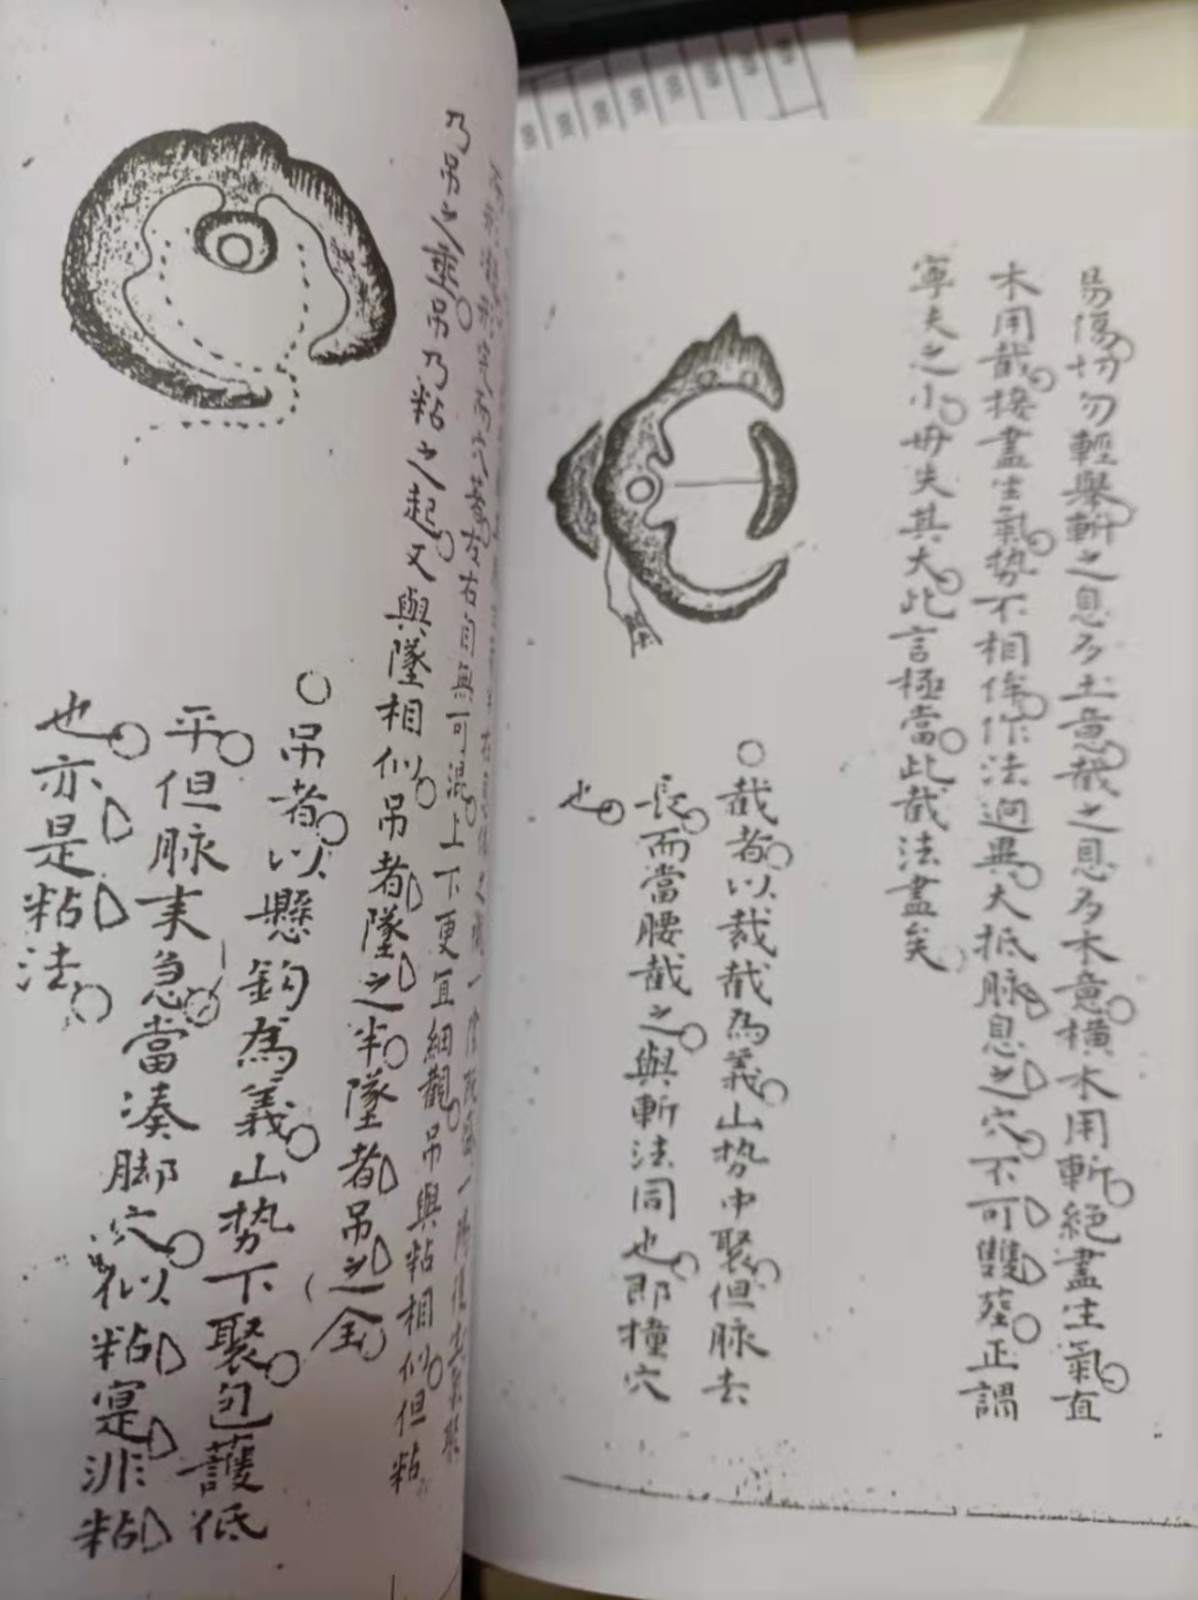 易傷切勿輕舉斬之息多土意截之息多木意橫木用斬絕盡生氣直
木用截接盡生氣勢不相侔作法迥異大抵脉息之穴不可雙葬正謂
寧失之小毋失其大此言極當此截法盡矣
截者以裁截為義山势中聚但脉去
長而當腰截之與斬法同也即撞穴
也
左右自無可混上下更宜細觀吊與粘相似但粘
乃吊之垂吊乃粘之起又與墜相似吊者墜之半墜者吊之全
吊者以懸鈎為義山势下聚包護低
平但脉来急當湊脚穴似粘寔非粘
也亦是粘法